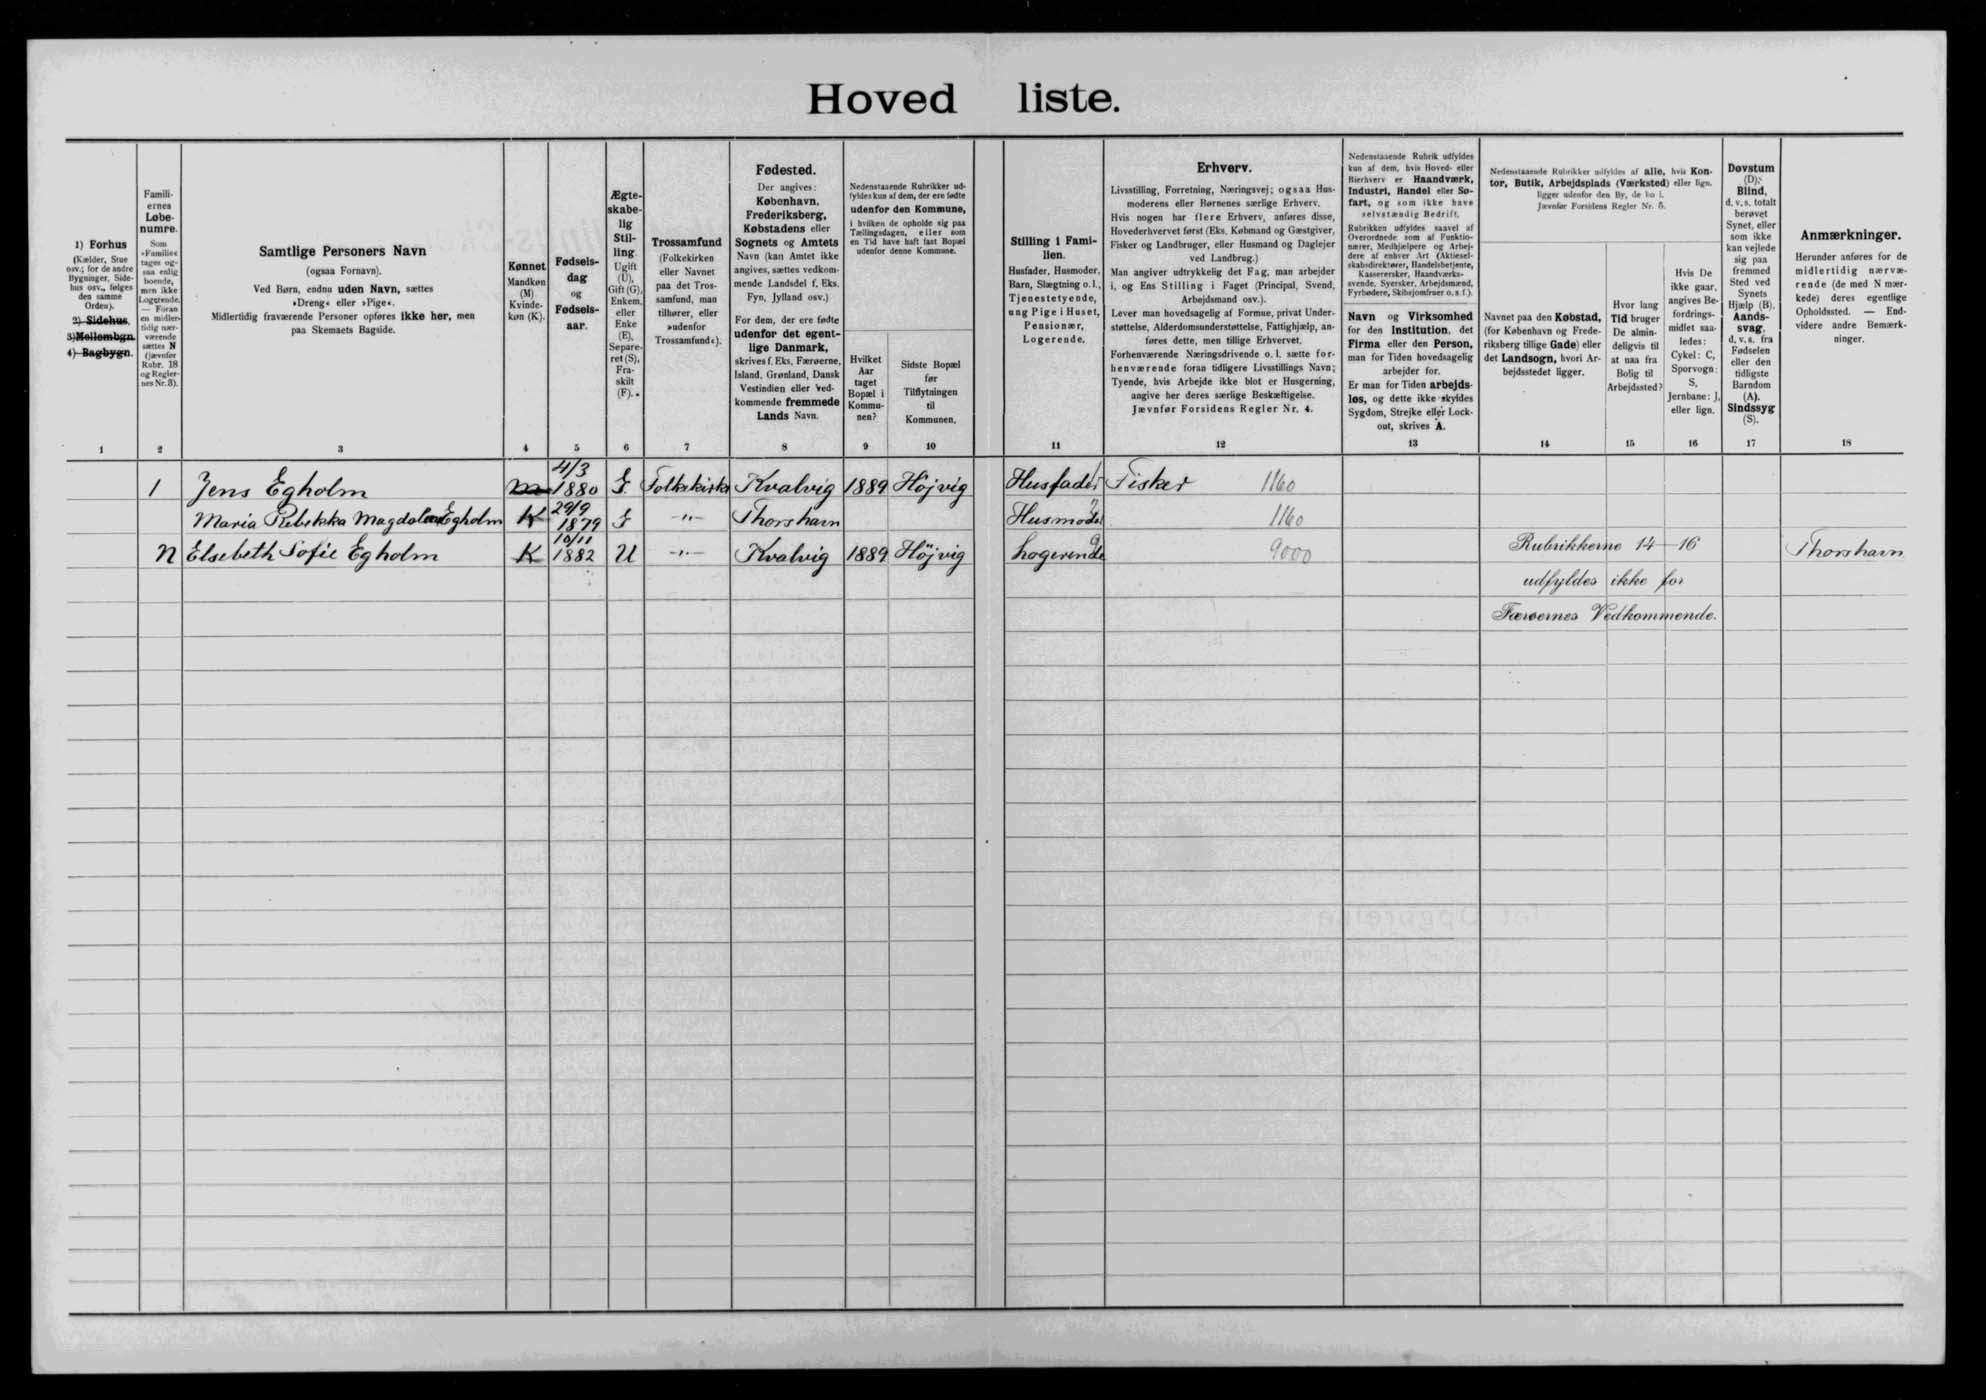 Hovedliste.
1) Forhus
(Kælder, Stue
osv.; for de andre
Bygninger, Side-
hus osv., følges
den samme
Orden).
2) Sidehus.
3) Mellembgn.
4) Bagbygn.
1
Famili-
ernes
Løbe-
numre.
Som
»Familie«
tages og-
saa enlig
boende,
men ikke
Logerende.
— Foran
en midler-
tidig nær-
værende
sættes N
(jævnfør
Rubr. 18
og Regler-
nes Nr. 3).
2
Samtlige Personers Navn
(ogsaa Fornavn).
Ved Børn, endnu uden Navn, sættes
»Dreng« eller »Pige«.
Midlertidig fraværende Personer opføres ikke her, men
paa Skemaets Bagside.
3
Kønnet
Mandkøn
(M)
Kvinde-
køn (K).
4
Fødsels-
dag
og
Fødsels-
aar.
5
Ægte-
skabe-
lig
Stil-
ling.
Ugift
(U),
Gift (G),
Enkem.
eller
Enke
(E),
Separe-
ret (S),
Fra-
skilt
(F).
6
Trossamfund
(Folkekirken
eller Navnet
paa det Tros-
samfund, man
tilhører, eller
»udenfor
Trossamfund«).
7
Fødested.
Der angives:
København,
Frederiksberg,
Købstadens eller
Sognets og Amtets
Navn (kan Amtet ikke
angives, sættes vedkom-
mende Landsdel f. Eks.
Fyn, Jylland osv.)
For dem, der ere fødte
udenfor det egent-
lige Danmark,
skrives f. Eks. Færøerne,
Island, Grønland, Dansk
Vestindien eller ved-
kommende fremmede
Lands Navn.
8
Nedenstaaende Rubrikker ud-
fyldes kun af dem, der ere fødte
udenfor den Kommune,
i hvilken de opholde sig paa
Tællingsdagen, eller som
en Tid have haft fast Bopæl
udenfor denne Kommune.
Hvilket
Aar
taget
Bopæl i
Kommu-
nen?
9
Sidste Bopæl
før
Tilflytningen
til
Kommunen.
10
Stilling i Fami-
lien.
Husfader, Husmoder,
Barn, Slægtning o. l.,
Tjenestetyende,
ung Pige i Huset,
Pensionær,
Logerende.
11
Erhverv.
Livsstilling, Forretning, Næringsvej; ogsaa Hus-
moderens eller Børnenes særlige Erhverv.
Hvis nogen har flere Erhverv, anføres disse,
Hovederhvervet først (Eks. Købmand og Gæstgiver,
Fisker og Landbruger, eller Husmand og Daglejer
ved Landbrug.)
Man angiver udtrykkelig det Fag, man arbejder
i, og Ens Stilling i Faget (Principal, Svend,
Arbejdsmand osv.).
Lever man hovedsagelig af Formue, privat Under-
støttelse, Alderdomsunderstøttelse, Fattighjælp, an-
føres dette, men tillige Erhvervet.
Forhenværende Næringsdrivende o. l. sætte for-
henværende foran tidligere Livsstillings Navn;
Tyende, hvis Arbejde ikke blot er Husgerning,
angive her deres særlige Beskæftigelse.
Jævnfør Forsidens Regler Nr. 4.
12
Nedenstaaende Rubrik udfyldes
kun af dem, hvis Hoved- eller
Bierhverv er Haandværk,
Industri, Handel eller Sø-
fart, og som ikke have
selvstændig Bedrift.
Rubrikken udfyldes saavel af
Overordnede som af Funktio-
nærer, Medhjælpere og Arbej-
dere af enhver Art (Aktiesel-
skabsdirektører, Handelsbetjente,
Kasserersker, Haandværks-
svende, Syersker, Arbejdsmænd,
Fyrbødere, Skibsjomfruer o. s. f.).
Navn og Virksomhed
for den Institution, det
Firma eller den Person,
man for Tiden hovedsagelig
arbejder for.
Er man for Tiden arbejds-
løs, og dette ikke skyldes
Sygdom, Strejke eller Lock-
out, skrives A.
13
Nedenstaaende Rubrikker udfyldes af alle, hvis Kon-
tor, Butik, Arbejdsplads (Værksted) eller lign.
ligger udenfor den By, de bo i.
Jævnfør Forsidens Regler Nr. 5.
Navnet paa den Købstad,
(for København og Frede-
riksberg tillige Gade) eller
det Landsogn, hvori Ar-
bejdsstedet ligger.
14
Hvor lang
Tid bruger
De almin-
deligvis til
at naa fra
Bolig til
Arbejdssted?
15
Hvis De
ikke gaar,
angives Be-
fordrings-
midlet saa-
ledes:
Cykel: C,
Sporvogn:
S,
Jernbane: J,
eller lign.
16
Døvstum
(D),
Blind,
d. v. s. totalt
berøvet
Synet, eller
som ikke
kan vejlede
sig paa
fremmed
Sted ved
Synets
Hjælp (B).
Aands-
svag,
d. v. s. fra
Fødselen
eller den
tidligste
Barndom
(A).
Sindssyg
(S).
17
Anmærkninger.
Herunder anføres for de
midlertidig nærvæ-
rende (de med N mær-
kede) deres egentlige
Opholdssted. — End-
videre andre Bemærk-
ninger.
18
1 Jens Egholm M 4/3 1880 G. Folkekirke Kvalvig 1889 Höjvig Husfader Fisker 1160
Maria Rebekka Magdalena Egholm K 29/9 1879 G -"- Thorshavn Husmoder 1160
N Elsebeth Sofie Egholm K 10/11 1882 U -"- Kvalvig 1889 Höjvig Logerende 9000 Thorshavn
Rubrikkerne 14-16
udfyldes ikke for
Færøernes Vedkommende.